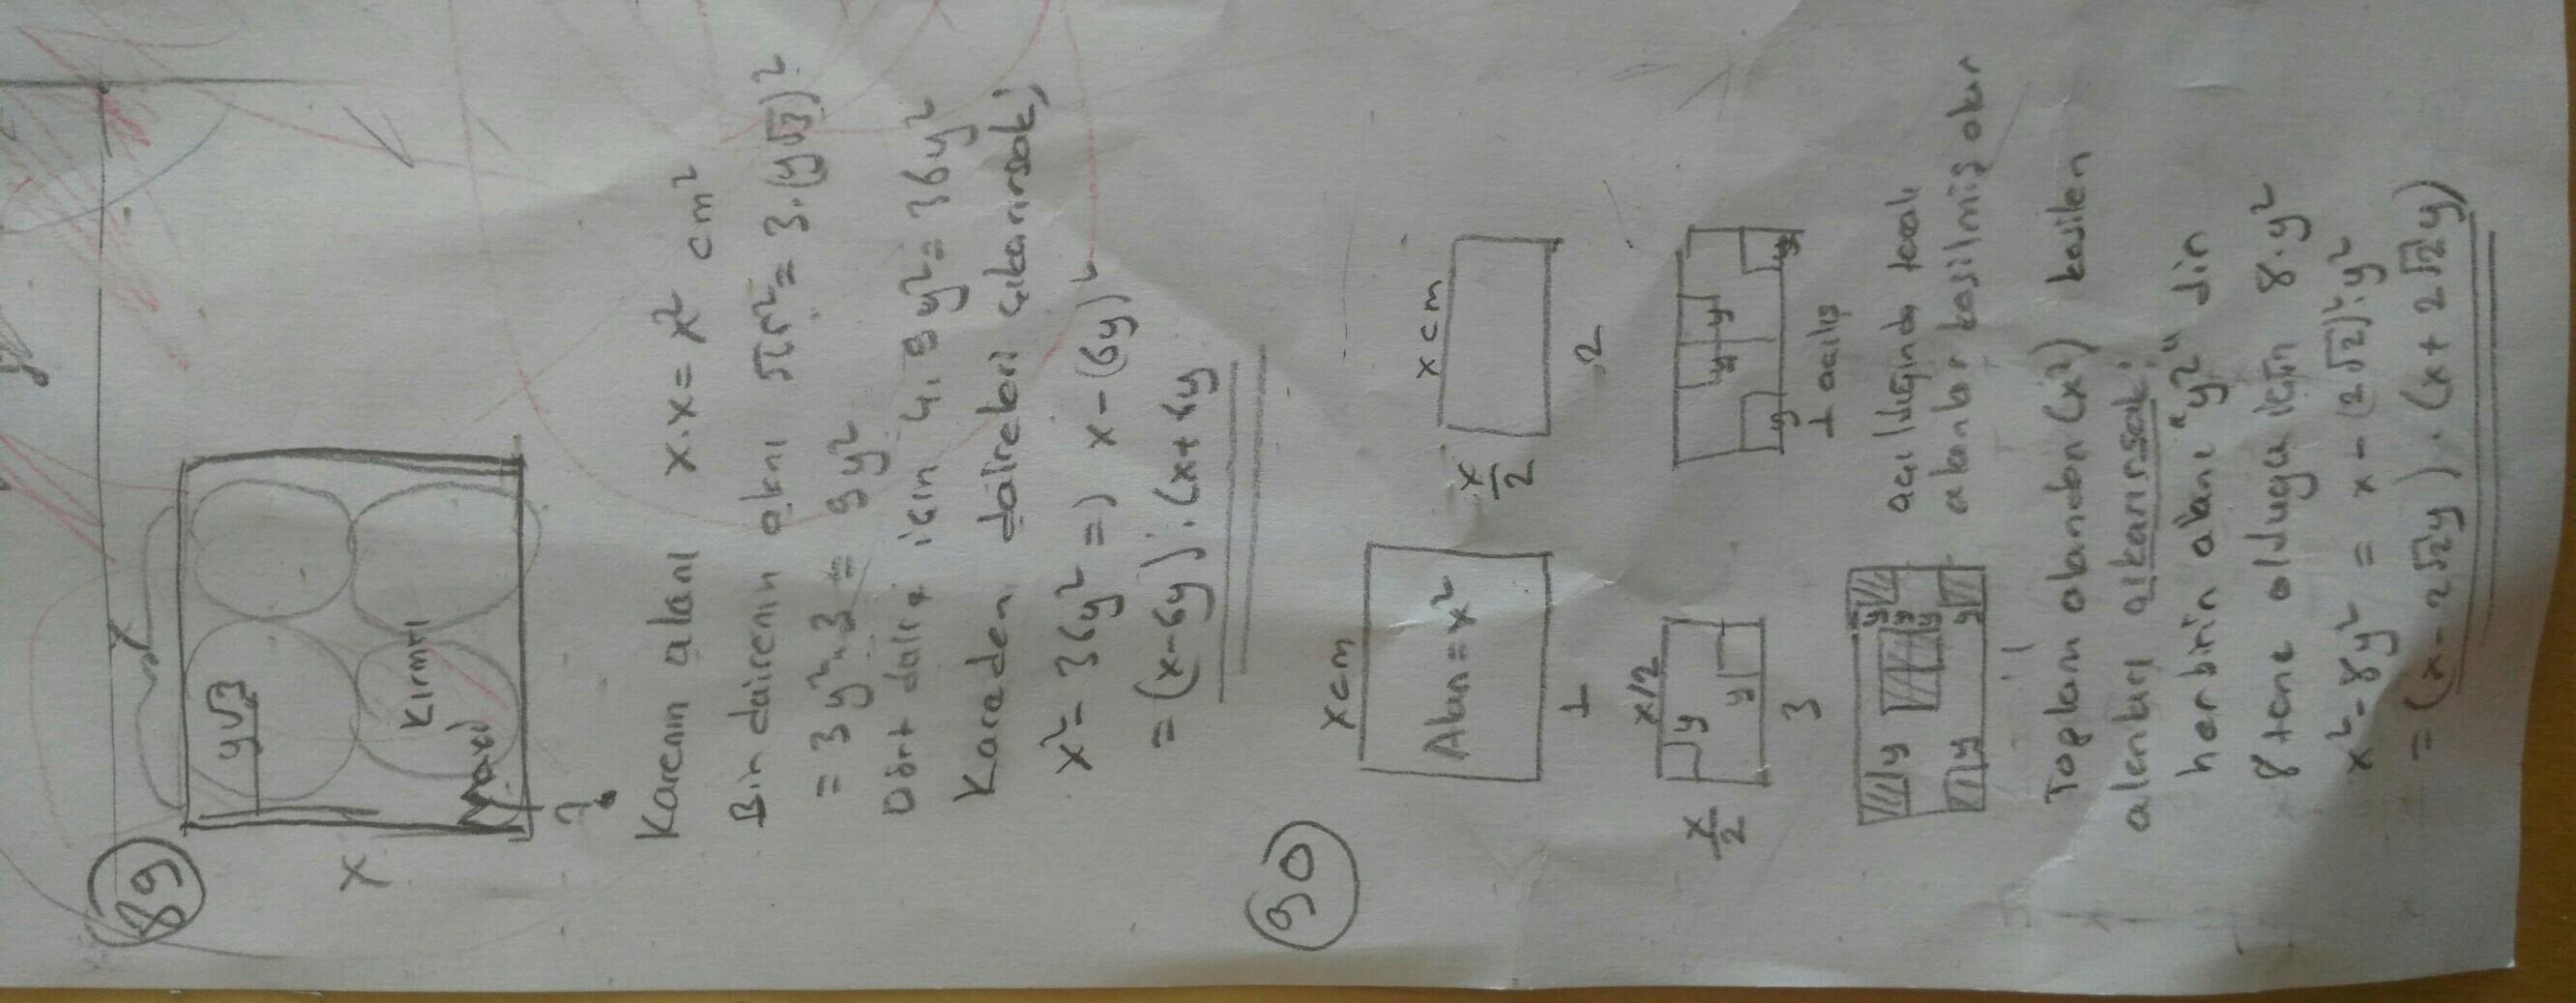 89
x
x
y√3
Kırmızı
Mavi
?
Karenin alanı x.x = x² cm²
Bir dairenin alanı πr² = 3.(y√3)²
= 3y².3 = 9y²
Dört daire için 4.9y² = 36y²
Kareden daireleri çıkarırsak;
x² - 36y² => x - (6y)²
= (x-6y).(x+6y
90
x cm
Alan = x²
1
x cm
x/2
2
x/2
x/2
y
y
3
y
y
y
y
1 açılış
y
y
y
y
y
y
açıldığında
alanlar kesilmiş olur
Toplam alandan (x²) kesilen
alanları çıkarırsak;
herbirin alanı "y²" din
8 tane olduğu için 8.y²
x² - 8y² = x - (2√2)².y²
= (x - 2√2y).(x + 2√2y)